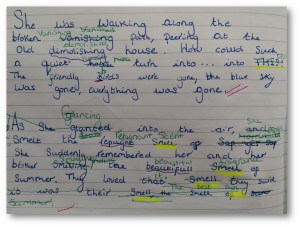 She was walking along the
Vanishing Vanished
broken vanishing path, peering at the
demolishing
Old dimolishing house. How could such
a quiet house turn into... into THIS!
The friendly birds were gone, the blue sky
was gone, everything was gone.
Glancing
As She glanced into the air, and
Smelt the Smell of
She Suddenly remembered her and her
beautiful
brother the beautifull Smell of
Summer. They loved that Smell they said
it was their Smell the smell of
Summer